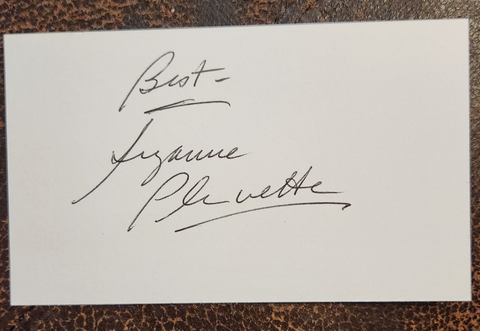 Best-
Suzanne
Pleshette